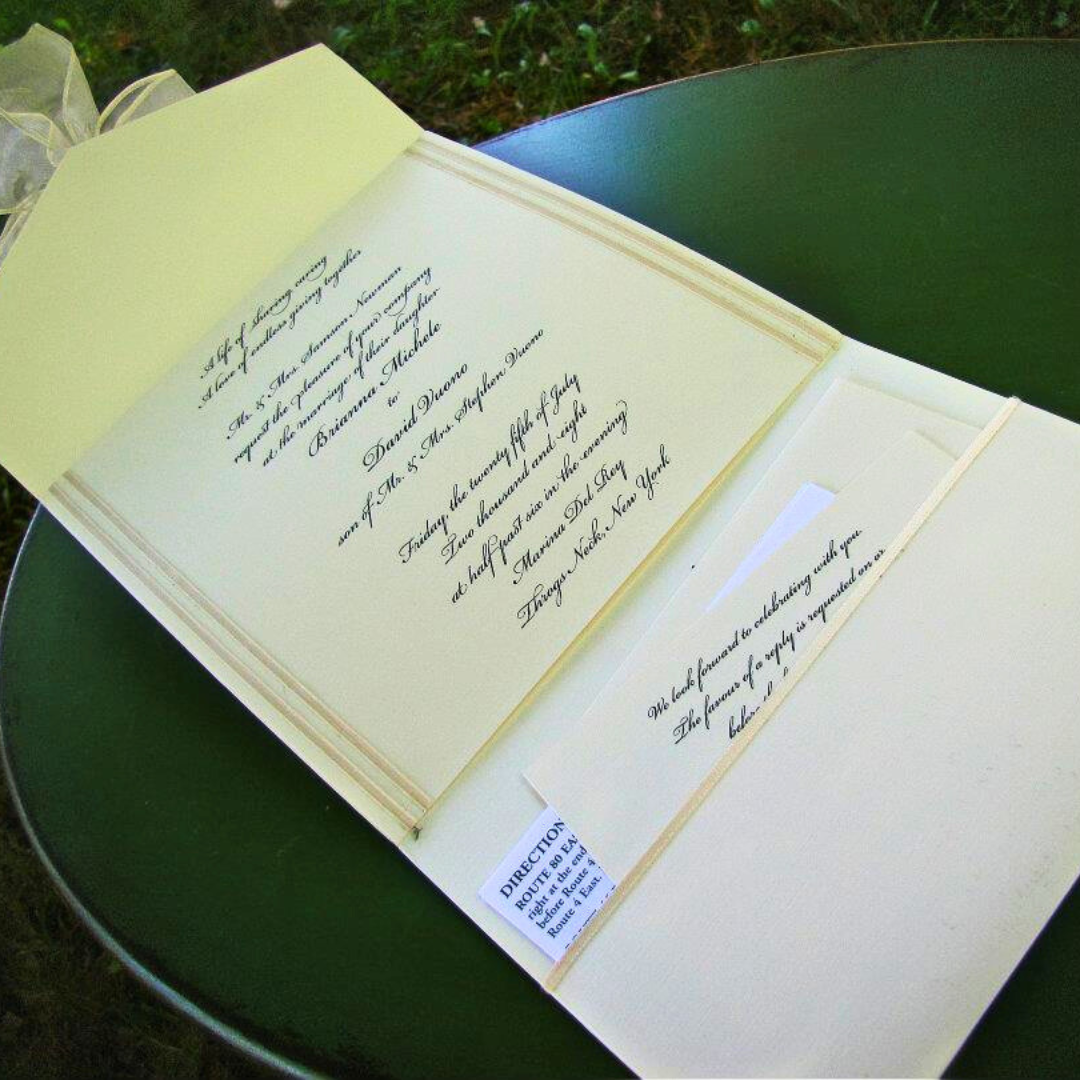 A life of sharing caring
A love of endless giving together
Mr. & Mrs. Samson Newman
request the pleasure of your company
at the marriage of their daughter
Brianna Michele
to
David Vuono
son of Mr. & Mrs. Stephen Vuono
Friday, the twenty fifth of July
Two thousand and eight
at half past six in the evening
Marina Del Rey
Throgs Neck, New York
We look forward to celebrating with you.
The favour of a reply is requested on or
before
DIRECTION
ROUTE 80 EA
right at the end
before Route 4
Route 4 East.